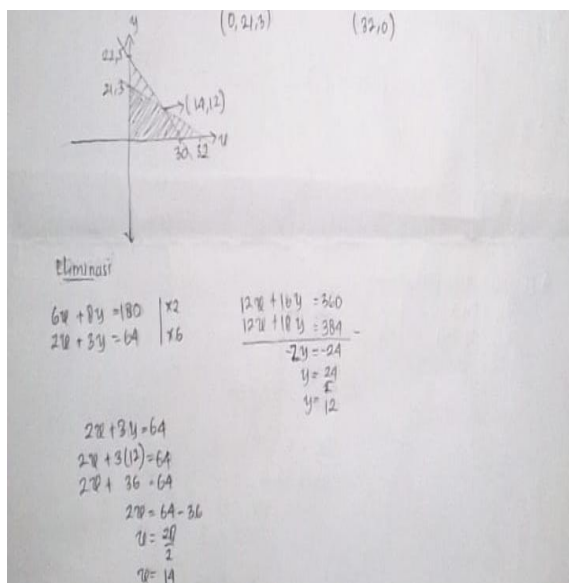 y
(0,21,3)
(32,0)
22,5
21,3
(14,12)
30 32
x
Eliminasi
6x + 8y = 180 | x2
2x + 3y = 64 | x6
12x + 16y = 360
12x + 18y = 384 -
-2y = -24
y = 24
2
y = 12
2x + 3y = 64
2x + 3(12) = 64
2x + 36 = 64
2x = 64 - 36
x = 28
2
x = 14